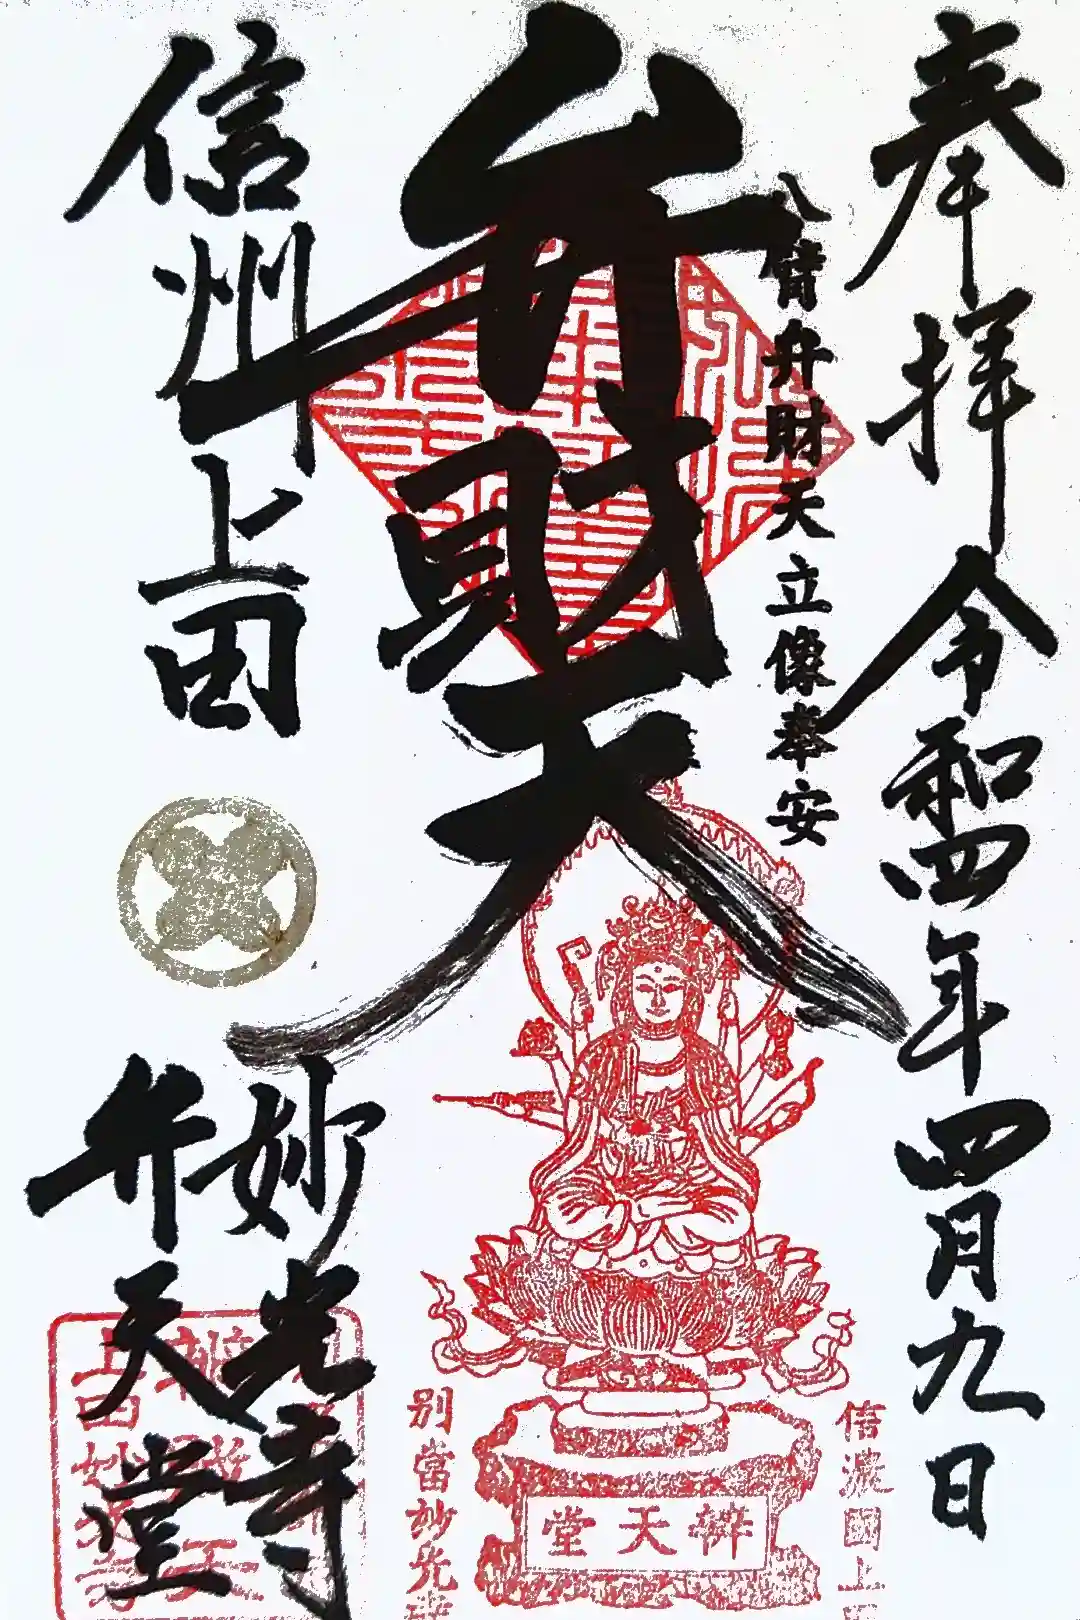 奉拝 令和四年四月九日
八臂弁財天立像奉安
弁財天
信州上田
妙光寺
弁天堂
辨天堂
信濃國上田
別當妙光寺